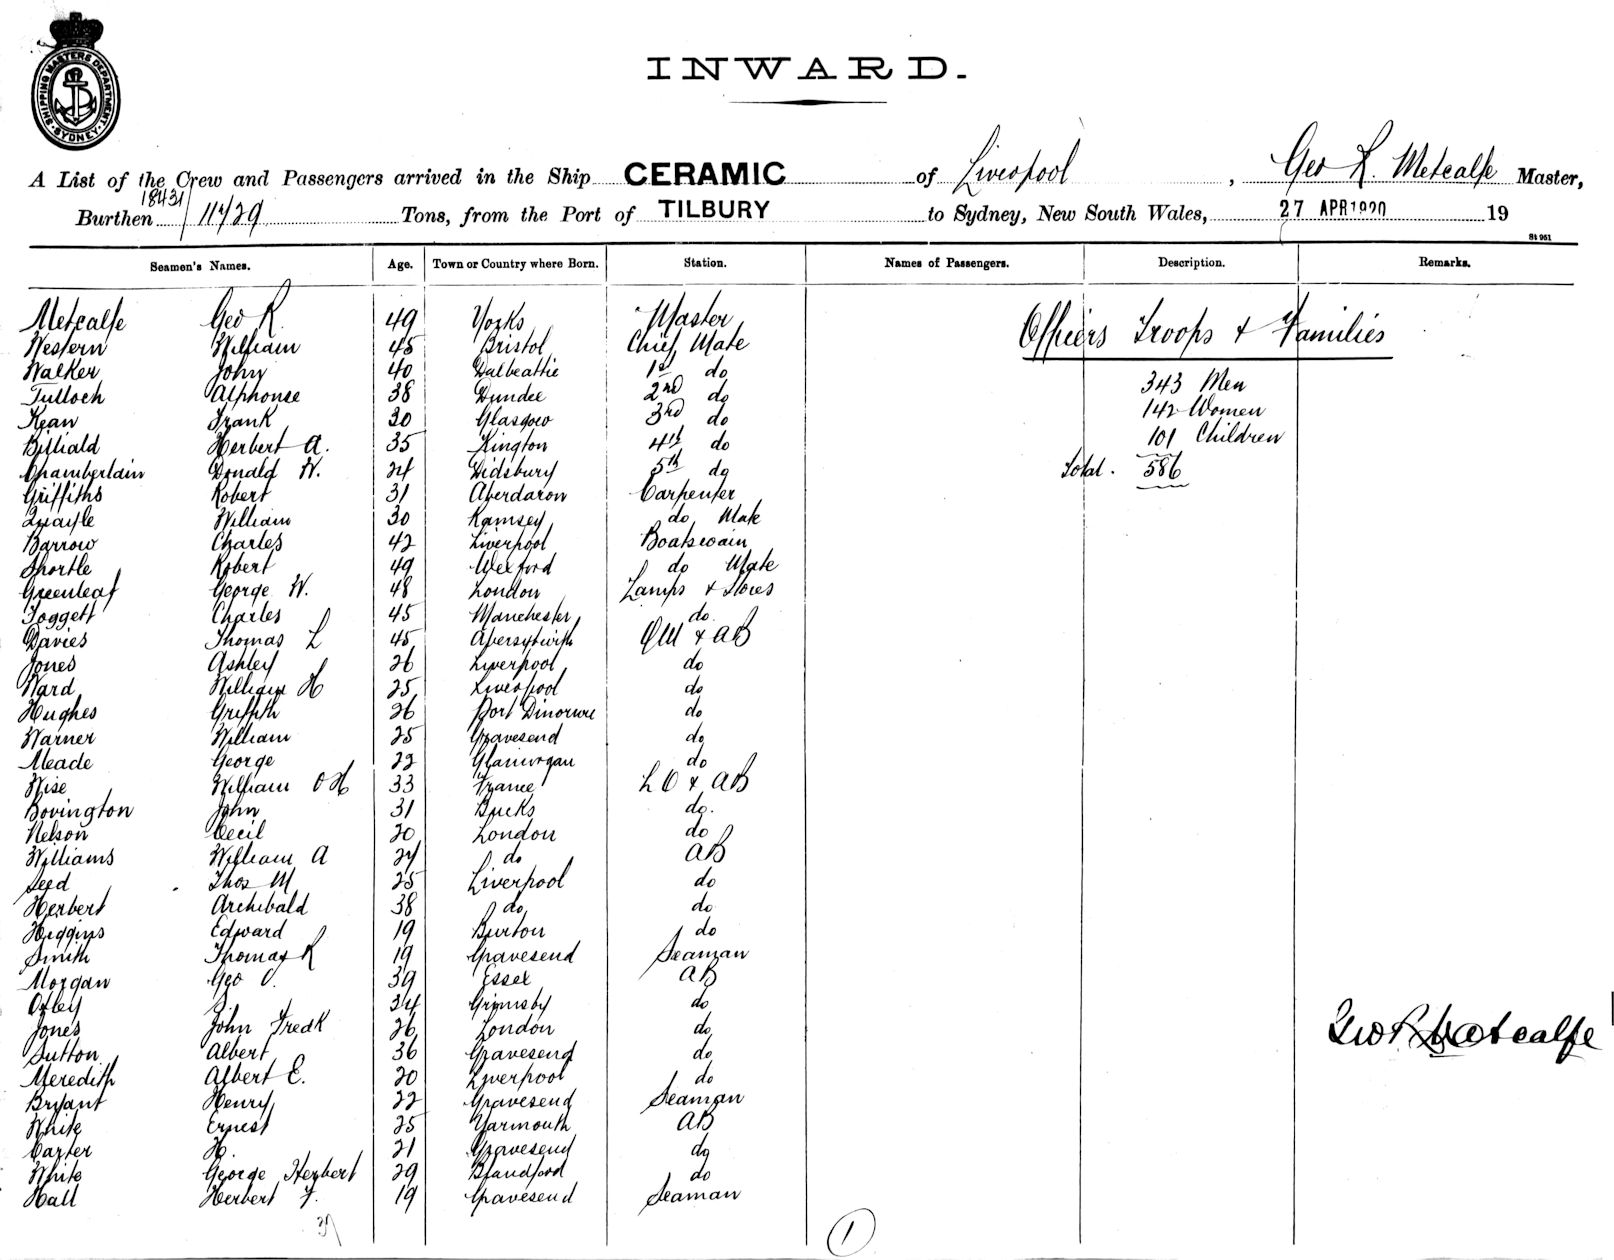 SHIPPING MASTERS DEPARTMENT SYDNEY
INWARD.
A List of the Crew and Passengers arrived in the Ship CERAMIC of Liverpool, Geo R. Metcalfe Master,
18431
Burthen 11729 Tons, from the Port of TILBURY to Sydney, New South Wales, 27 APR 1920 19
St 961
Seamen's Names. Age. Town or Country where Born. Station. Names of Passengers. Description. Remarks.
Metcalfe Geo R. 49 Yorks Master
Officers Troops & Families
Western William 45 Bristol Chief Mate
Walker John 40 Dalbeattie 1st do
343 Men
Tulloch Alphonse 38 Dundee 2nd do
142 Women
Kean Frank 30 Glasgow 3rd do
101 Children
Billiald Herbert A. 35 Kington 4th do
Total. 586
Chamberlain Donald W. 24 Didsbury 5th do
Griffiths Robert 31 Aberdaron Carpenter
Quayle William 30 Ramsey do Mate
Barrow Charles 42 Liverpool Boatswain
Shortle Robert 49 Wexford do Mate
Greenleaf George W. 48 London Lamps & Stores
Foggett Charles 45 Manchester do.
Davies Thomas L 45 Abersytwith QM & AB
Jones Ashley 26 Liverpool do
Ward William H 25 Liverpool do
Hughes Griffith 26 Port Dinorwic do
Warner William 25 Gravesend do
Meade George 22 Glamorgan do
Wise William O H 33 France L O & AB
Bovington John 31 Bucks do.
Nelson Cecil 20 London do
Williams William A 24 do AB
Seed Thos M 25 Liverpool do
Herbert Archibald 38 do do
Higgins Edward 19 Burton do
Smith Thomas R 19 Gravesend Seaman
Morgan Geo O. 39 Essex AB
Oxley 34 Grimsby do
Jones John Fredk 26 London do
Geo R Metcalfe
Sutton Albert 36 Gravesend do
Meredith Albert E. 20 Liverpool do
Bryant Henry 22 Gravesend Seaman
White Ernest 25 Yarmouth AB
Carter H. 21 Gravesend do
White George Herbert 29 Blandford do
Hall Herbert F. 19 Gravesend Seaman
37
1